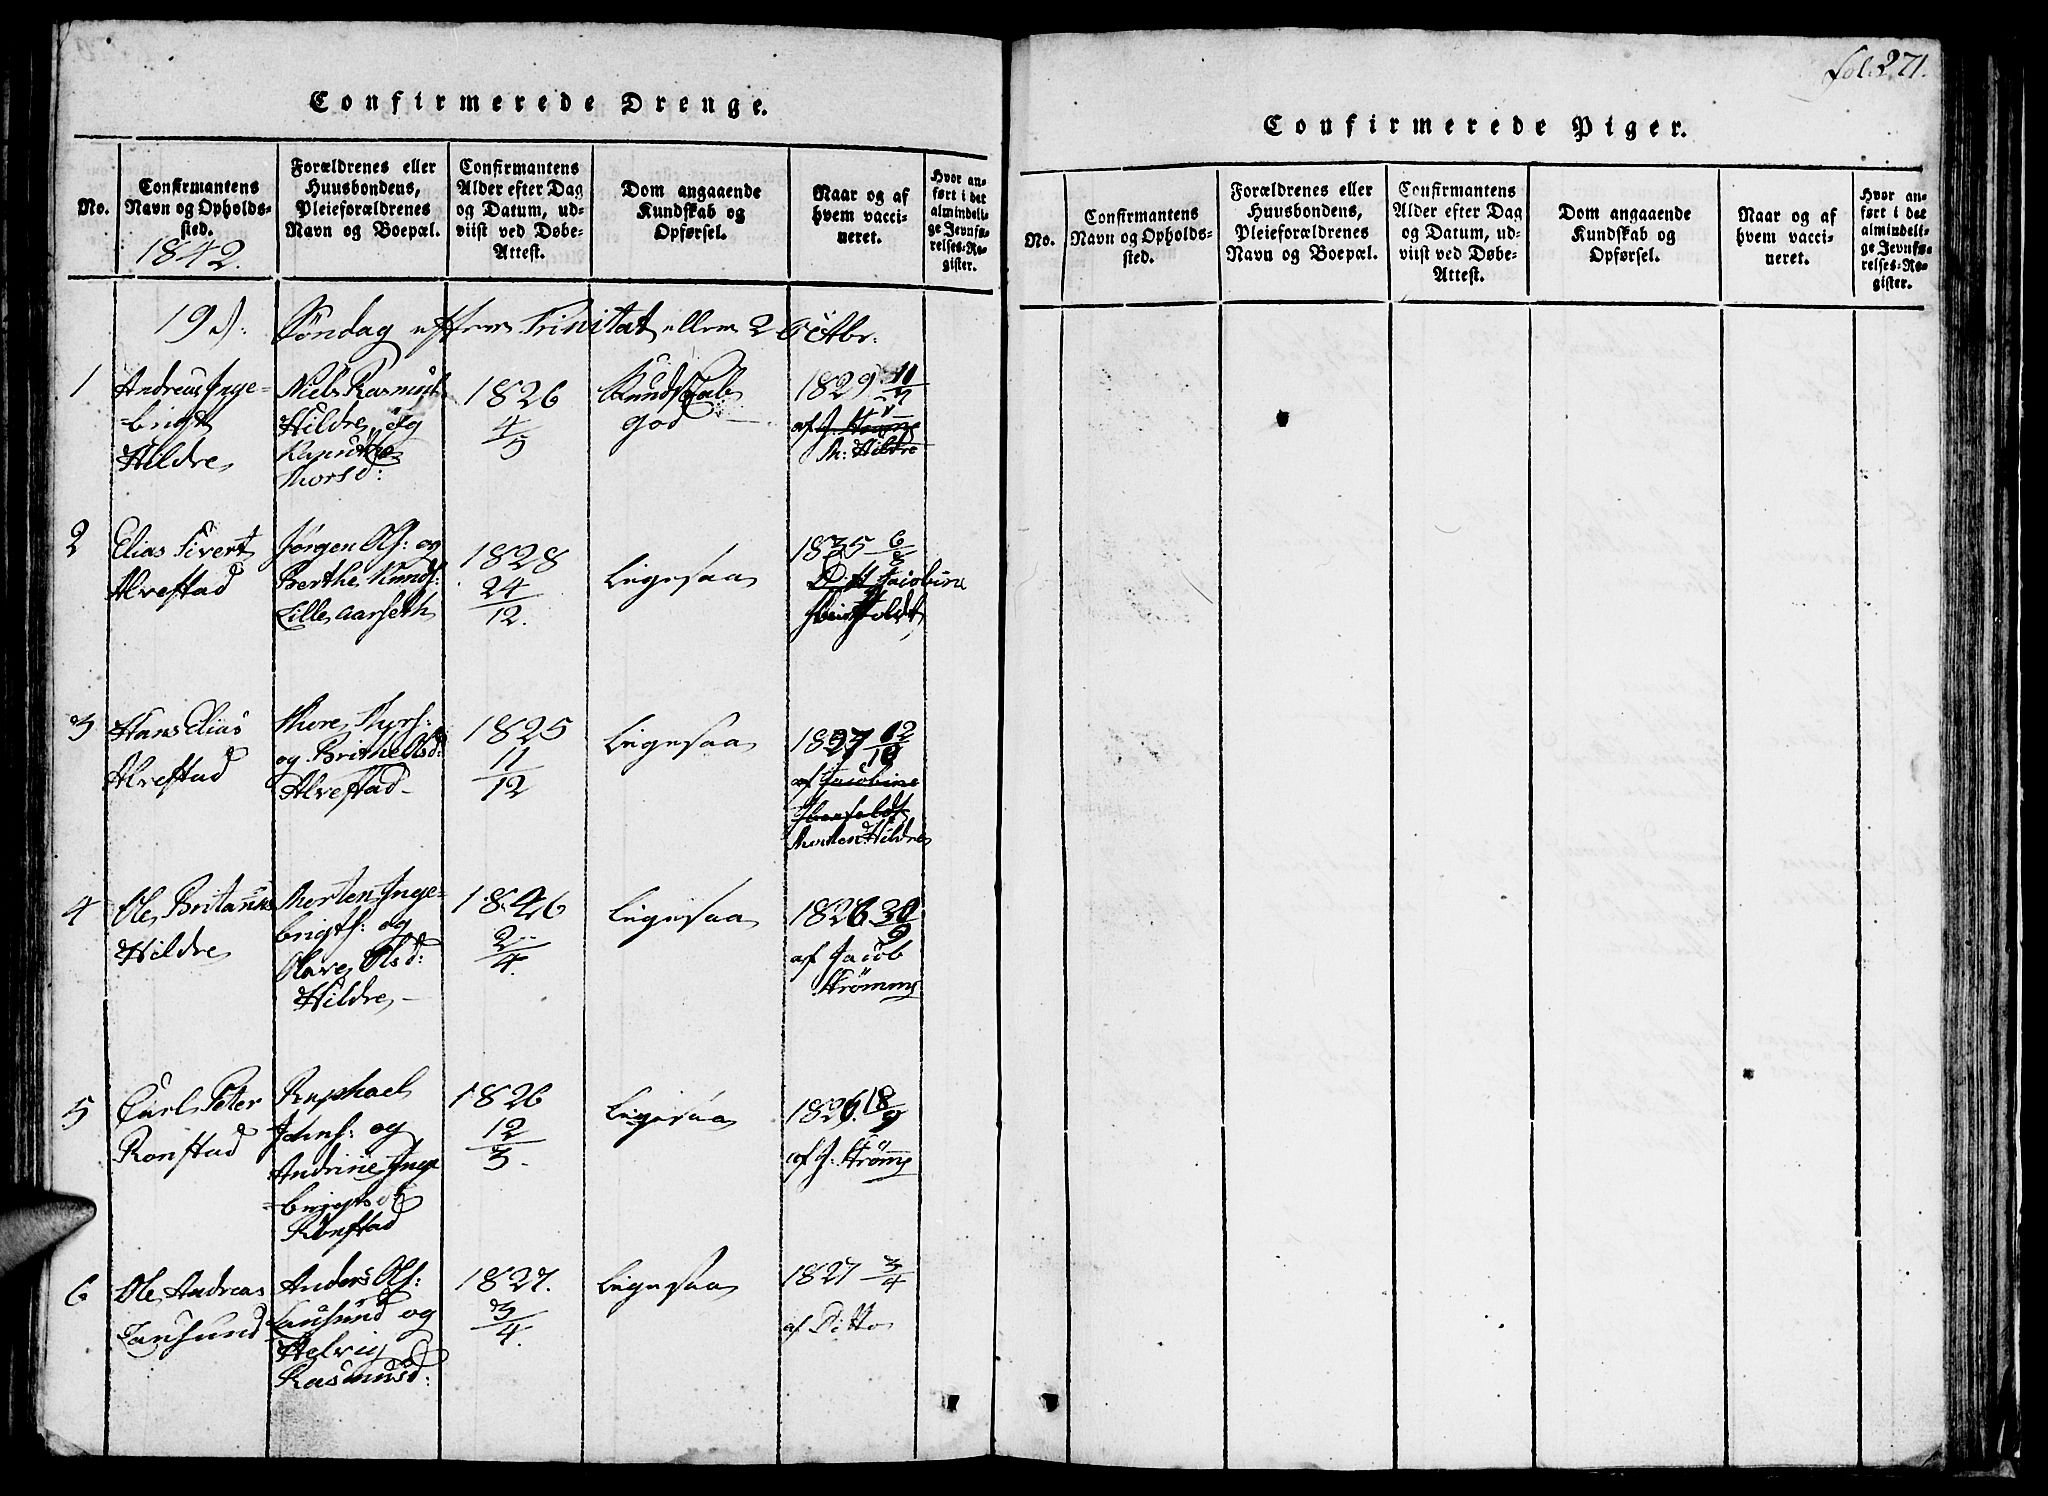 Confirmerede Drenge.
No.
Confirmantens
Navn og Opholds-
sted.
1842.
Forældrenes eller
Huusbondens,
Pleieforældrenes
Navn og Boepæl.
Confirmantens
Alder efter Dag
og Datum, ud-
viist ved Døbe-
Attest.
Dom angaaende
Kundskab og
Opførsel.
Naar og af
hvem vacci-
neret.
Hvor an-
ført i det
almindeli-
ge Jevnfø-
relses-Re-
gister.
19d: Søndag efter Trinitat eller 2 Octbr:
1
Andreas Inge-
-brigt
Hildre
Niels Rasmus
Hildre og
Thorsd:
1826
4/5
Kundskab
god
1829 11/7
af J. Strømme
M: Hildre
2
Elias Sivert
Alvestad
Jørgen Ols: og
Berthe Knuds:
Lille Aarseth
1828
24/12.
Ligesaa
1835 6/8
Jacobine
3
Hans Elias
Alvestad
Thore Thors:
og Brithe Olsd:
Alvestad-
1825
11/12
Ligesaa
1827 12/10
af Jacobine
Morten Hildre
4
Ole Britanus
Hildre
Morten Inge-
brigts: og
Olave Olsd:
Hildre-
1826
2/4.
Ligesaa
1826 30/9
af Jacob
Strømme
5
Carl Peter
Rønstad
Raphael
Johns: og
Andrine Inge
-brigtsd:
Rønstad
1826
12/3.
Ligesaa
1826. 18/9
af J. Strømme
6
Ole Andreas
Lausund
Anders Ols:
Lausund og
Helvig
Rasmusd:
1827.
3/4.
Ligesaa
1827 3/4
af Ditto
fol: 271.
Confirmerede Piger.
No.
Confirmantens
Navn og Opholds-
sted.
Forældrenes eller
Huusbondens,
Pleieforældrenes
Navn og Boepæl.
Confirmantens
Alder efter Dag
og Datum, ud-
viist ved Døbe-
Attest.
Dom angaaende
Kundskab og
Opførsel.
Naar og af
hvem vacci-
neret.
Hvor an-
ført i det
almindeli-
ge Jevnfø-
relses-Re-
gister.